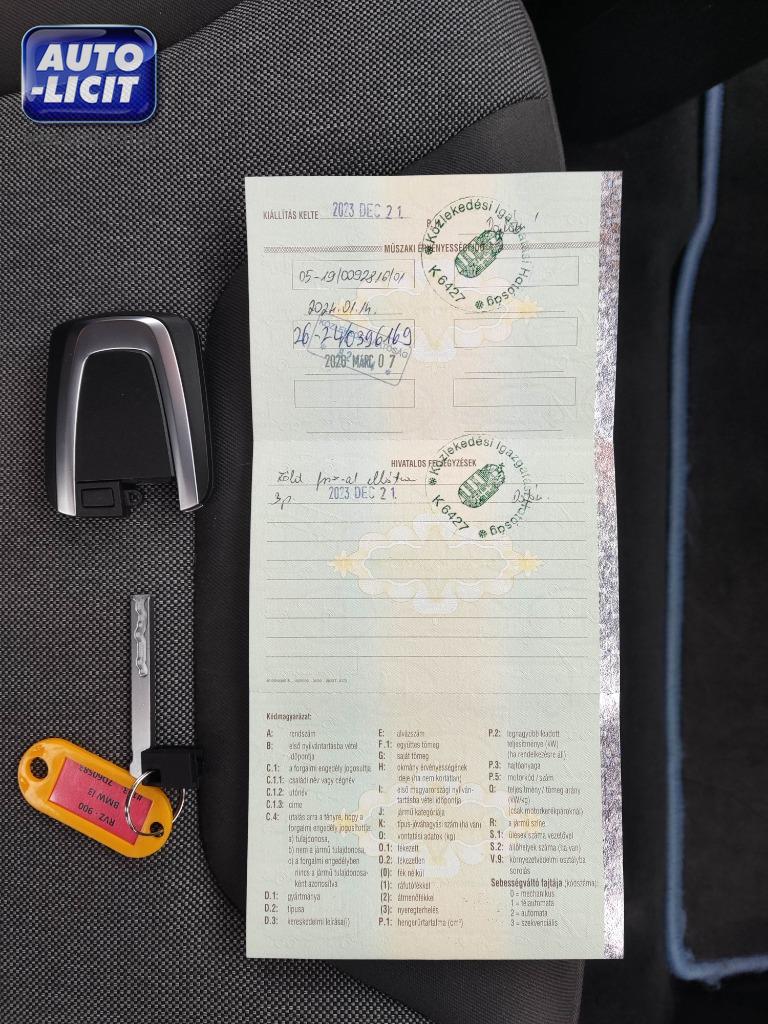 AUTO
-LICIT
KIÁLLÍTÁS KELTE 2023 DEC 21.
MŰSZAKI ÉRVÉNYESSÉGI IDŐ
Közlekedési Igazgatási Hatóság
K 6427
05-19/0092816/01
2024.01.14.
26-24/0396169
2026 MÁRC 07
HIVATALOS FELJEGYZÉSEK
Közlekedési Igazgatási Hatóság
K 6427
Zöld
2023 DEC 21.
Kódmagyarázat:
A: rendszám
B: első nyilvántartásba vétel
időpontja
C.1: a forgalmi engedély jogosultja
C.1.1: családi név vagy cégnév
C.1.2: utónév
C.1.3: címe
C.4: utalás arra a tényre, hogy a
forgalmi engedély jogosultja:
a) tulajdonosa,
b) nem a jármű tulajdonosa,
c) a forgalmi engedélyben
nincs a jármű tulajdonosa-
ként azonosítva
D.1: gyártmánya
D.2: típusa
D.3: kereskedelmi leírása(i)
E: alvázszám
F.1: együttes tömeg
G: saját tömeg
H: okmány érvényességének
ideje (ha nem korlátlan)
I: első magyarországi nyilván-
tartásba vétel időpontja
J: jármű kategóriája
K: típus-jóváhagyási szám (ha van)
O: vontatási adatok (kg)
O.1: fékezett
O.2: fékezetlen
(0): fék nélkül
(1): ráfutófékkel
(2): átmenőfékkel
(3): nyeregterhelés
P.1: hengerűrtartalma (cm³)
P.2: legnagyobb leadott
teljesítménye (kW)
(ha rendelkezésre áll)
P.3: hajtóanyaga
P.5: motorkód / szám
Q: teljesítmény / tömeg arány
(kW/kg)
(csak motorkerékpároknál)
R: a jármű színe
S.1: ülések száma vezetővel
S.2: állóhelyek száma (ha van)
V.9: környezetvédelmi osztályba
sorolás
Sebességváltó fajtája (kódszáma):
0 = mechanikus
1 = félautomata
2 = automata
3 = szekvenciális
RVZ - 900
BMW I3